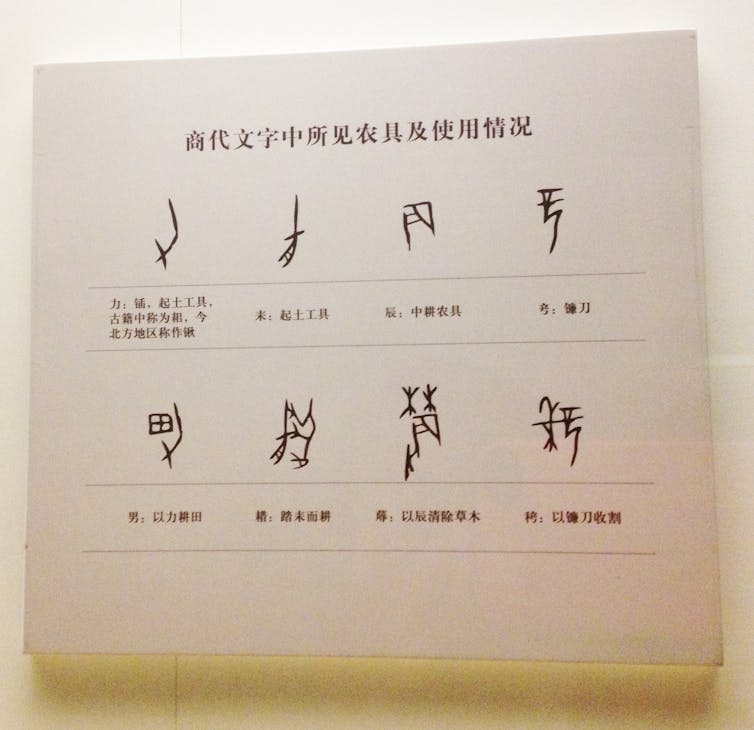 商代文字中所见农具及使用情况
力：锸，起土工具，
古籍中称为耜，今
北方地区称作锹
耒：起土工具
辰：中耕农具
㝸：镰刀
男：以力耕田
耤：踏耒而耕
蓐：以辰清除草木
：以镰刀收割